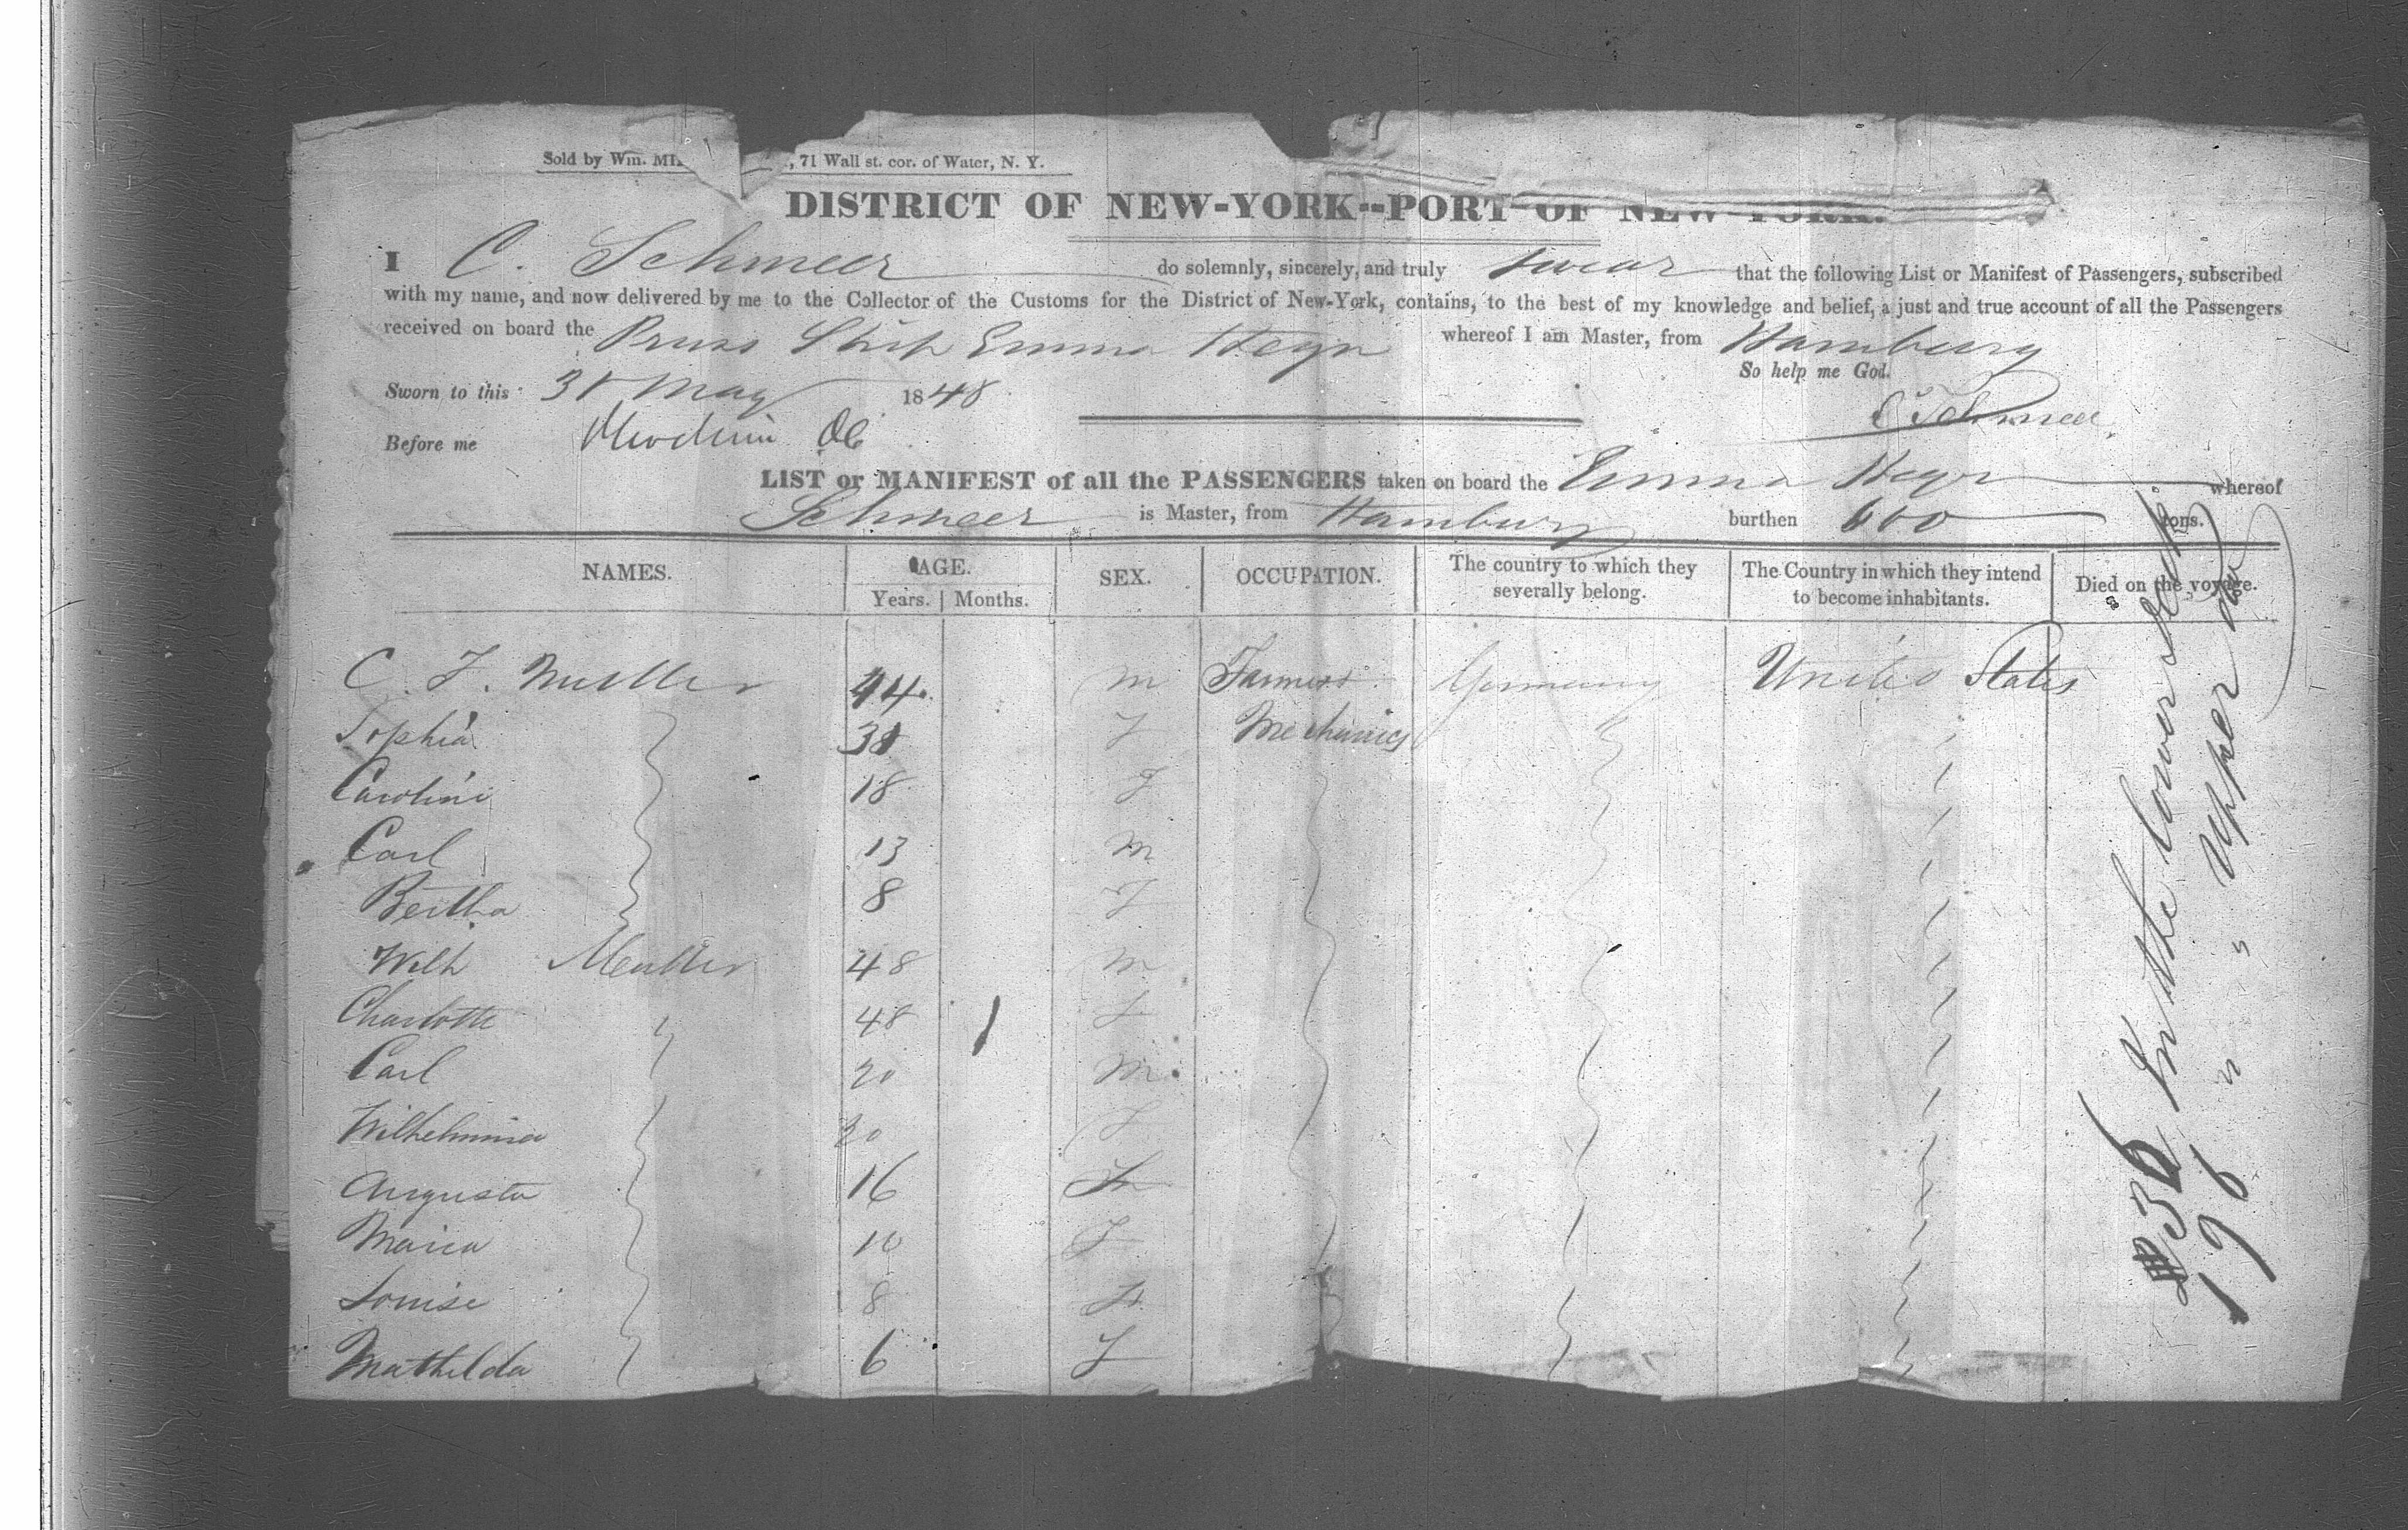 Sold by Wm. MIL , 71 Wall st. cor. of Water, N. Y.
DISTRICT OF NEW-YORK--PORT OF NEW-YORK.
I C. Schmeer do solemnly, sincerely, and truly swear that the following List or Manifest of Passengers, subscribed
with my name, and now delivered by me to the Collector of the Customs for the District of New-York, contains, to the best of my knowledge and belief, a just and true account of all the Passengers
received on board the Pruss Ship Emma Heyn whereof I am Master, from Hamburg
So help me God.
Sworn to this 31 May 1848
C Schmeer
Before me
LIST or MANIFEST of all the PASSENGERS taken on board the Emma Heyn whereof
Schmeer is Master, from Hamburg burthen 600 tons.
NAMES. AGE. Years. Months. SEX. OCCUPATION. The country to which they severally belong. The Country in which they intend to become inhabitants. Died on the voyage.
C. F. Mueller 44 m Farmers Germany United States
Sophia 38 F Mechanics
Carolini 18 F
Carl 13 m
Bertha 8 F
Wilh Mueller 48 m
Charlotte 48 F
Carl 20 m
Wilhelmina 20 F
Augusta 16 F
Maria 10 F
Louise 8 F
Mathilda 6 F
36 In the lower deck
196 " " upper do